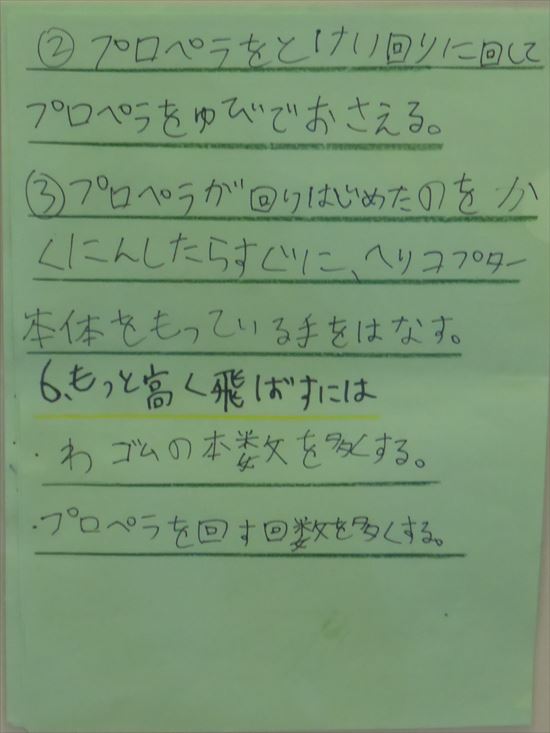 ②プロペラをとけい回りに回して
プロペラをゆびでおさえる。
③プロペラが回りはじめたのをか
くにんしたらすぐに、ヘリコプター
本体をもっている手をはなす。
6、もっと高く飛ばすには
・わゴムの本数を多くする。
・プロペラを回す回数を多くする。